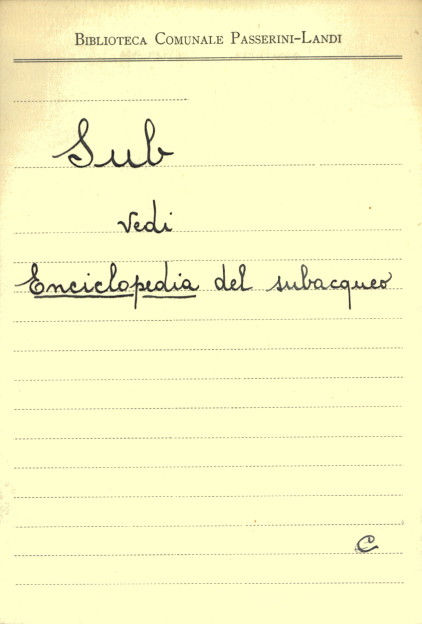 Biblioteca Comunale Passerini-Landi
Sub
vedi
Enciclopedia del subacqueo
C